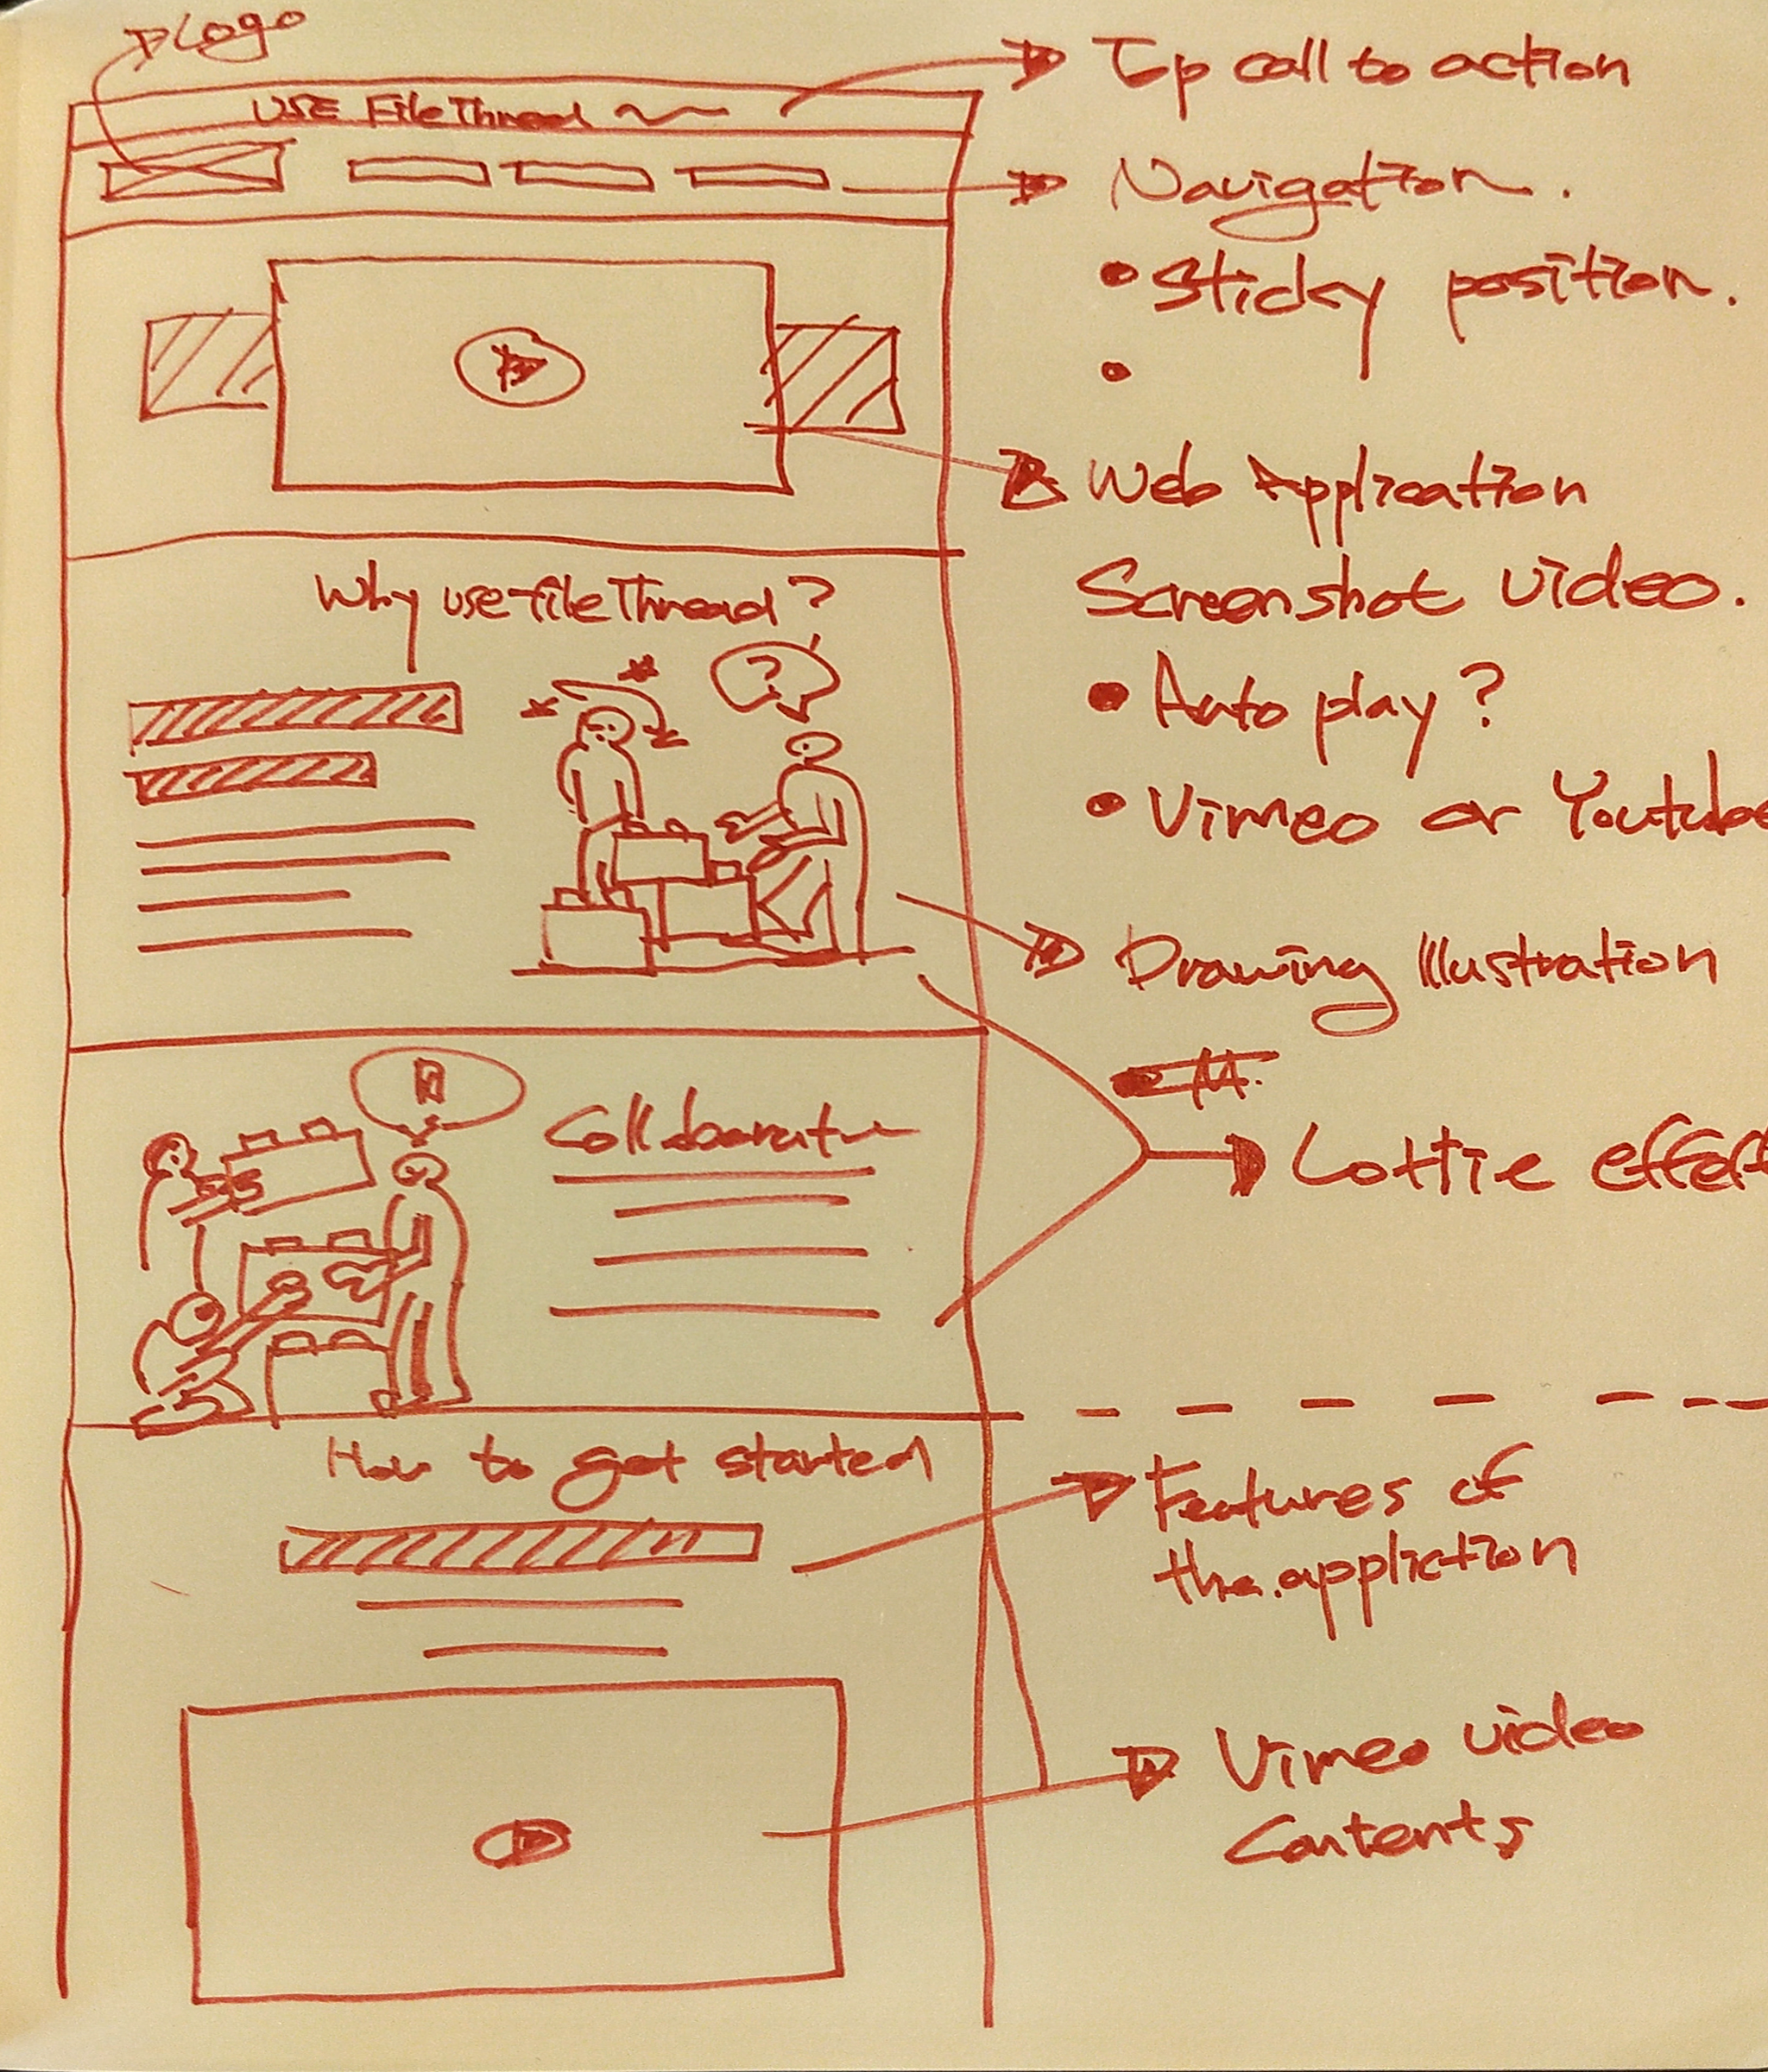 Logo
Top call to action
USE FileThread
Navigation.
• Sticky position.
•
Web Application
Screenshot video.
• Auto play?
• Vimeo or Youtube
Why use fileThread?
?
Drawing Illustration
Lottie effect
Collaborat
How to get started
Features of
the.appliction
Vimeo video
Contents